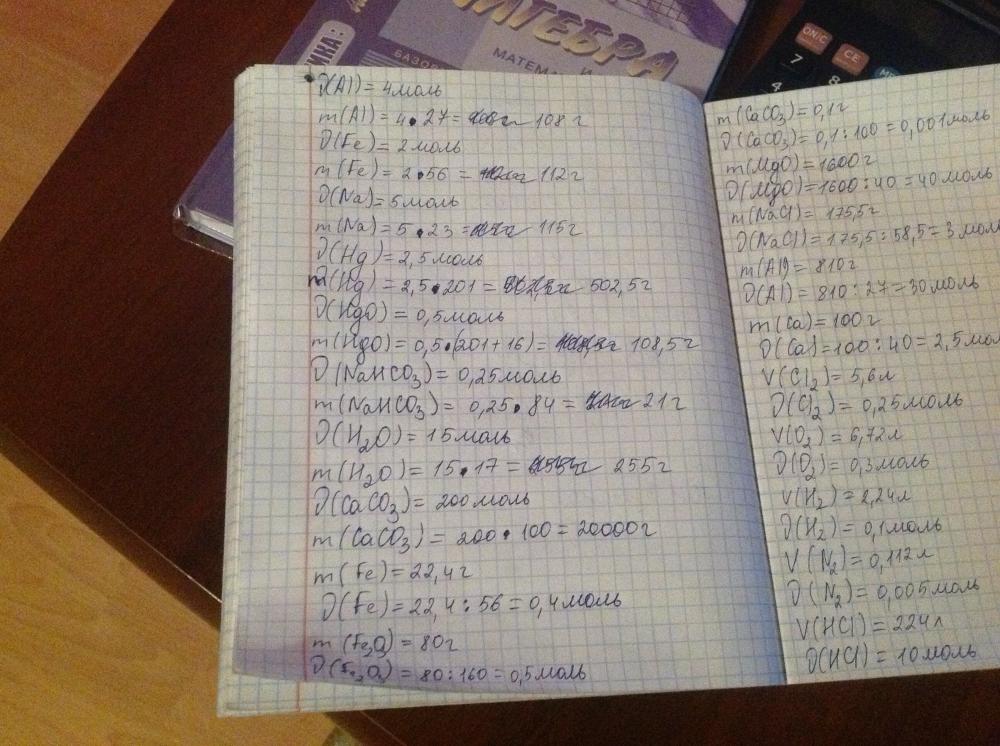 АЛГЕБРА
И
МАТЕМА
БАЗОВ
ИКА:
ON/C
CE
7
8
4
ν(Al) = 4моль
m(Al) = 4•27 = 108 г
ν(Fe) = 2моль
m(Fe) = 2•56 = 112г
ν(Na) = 5моль
m(Na) = 5•23 = 115г
ν(Hg) = 2,5моль
m(Hg) = 2,5•201 = 502,5г
ν(HgO) = 0,5моль
m(HgO) = 0,5•(201+16) = 108,5г
ν(NaHCO₃) = 0,25моль
m(NaHCO₃) = 0,25•84 = 21г
ν(H₂O) = 15моль
m(H₂O) = 15•17 = 255г
ν(CaCO₃) = 200моль
m(CaCO₃) = 200•100 = 20000г
m(Fe) = 22,4г
ν(Fe) = 22,4:56 = 0,4моль
m(Fe₂O₃) = 80г
ν(Fe₂O₃) = 80:160 = 0,5моль
m(CaCO₃) = 0,1г
ν(CaCO₃) = 0,1:100 = 0,001моль
m(MgO) = 1600г
ν(MgO) = 1600:40 = 40моль
m(NaCl) = 175,5г
ν(NaCl) = 175,5:58,5 = 3моль
m(Al) = 810г
ν(Al) = 810:27 = 30моль
m(Ca) = 100г
ν(Ca) = 100:40 = 2,5мол
V(Cl₂) = 5,6л
ν(Cl₂) = 0,25моль
V(O₂) = 6,72л
ν(O₂) = 0,3моль
V(H₂) = 2,24л
ν(H₂) = 0,1моль
V(N₂) = 0,112л
ν(N₂) = 0,005моль
V(HCl) = 224л
ν(HCl) = 10моль